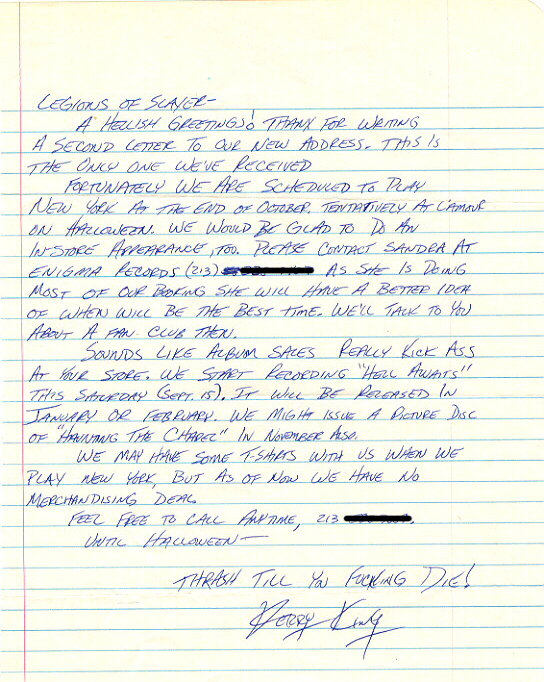 LEGIONS OF SLAYER-
A HELLISH GREETINGS! THANX FOR WRITING
A SECOND LETTER TO OUR NEW ADDRESS. THIS IS
THE ONLY ONE WE'VE RECEIVED
FORTUNATELY WE ARE SCHEDULED TO PLAY
NEW YORK AT THE END OF OCTOBER. TENTATIVELY AT L'AMOUR
ON HALLOWEEN. WE WOULD BE GLAD TO DO AN
IN-STORE APPEARANCE, TOO. PLEASE CONTACT SANDRA AT
ENIGMA RECORDS (213) AS SHE IS DOING
MOST OF OUR BOOKING SHE WILL HAVE A BETTER IDEA
OF WHEN WILL BE THE BEST TIME. WE'LL TALK TO YOU
ABOUT A FAN CLUB THEN.
SOUNDS LIKE ALBUM SALES REALLY KICK ASS
AT YOUR STORE. WE START RECORDING "HELL AWAITS"
THIS SATURDAY (SEPT. 15). IT WILL BE RELEASED IN
JANUARY OR FEBRUARY. WE MIGHT ISSUE A PICTURE DISC
OF "HAUNTING THE CHAPEL" IN NOVEMBER ALSO.
WE MAY HAVE SOME T-SHIRTS WITH US WHEN WE
PLAY NEW YORK, BUT AS OF NOW WE HAVE NO
MERCHANDISING DEAL.
FEEL FREE TO CALL ANYTIME, 213 .
UNTIL HALLOWEEN—
THRASH TILL YOU FUCKING DIE!
Kerry King